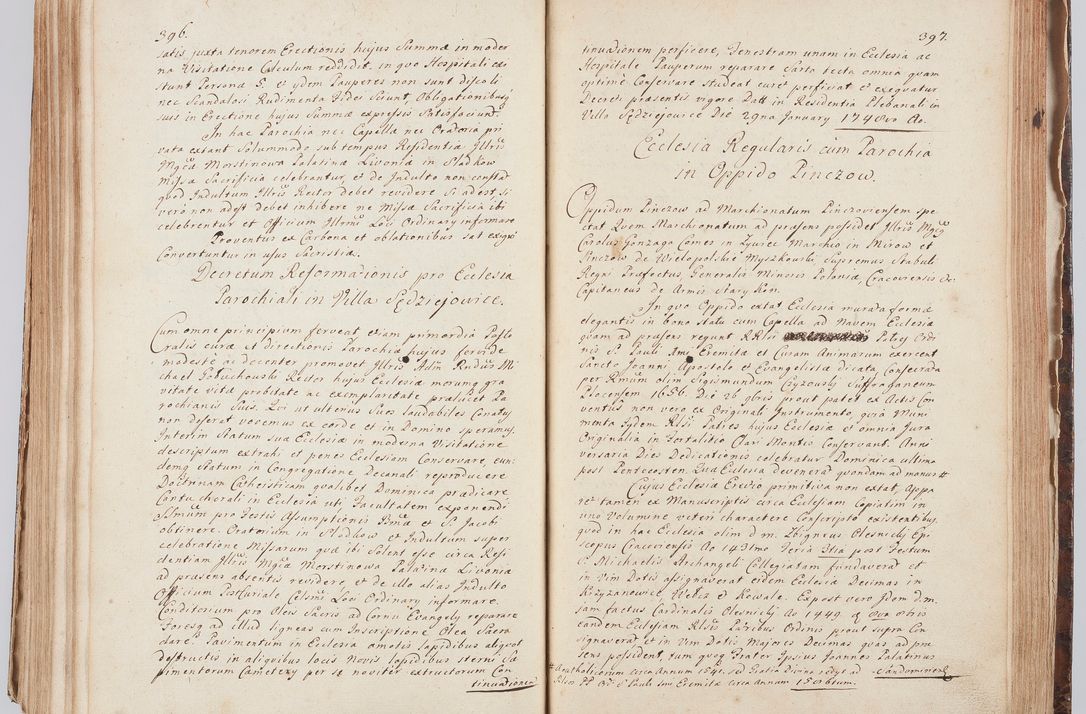 396.
satis juxta tenorem Erectionis hujus Summæ in moder
na Visitatione Calculum reddidit. in quo Hospitali exi
stunt Personæ 5. et ydem Pauperes non sunt Discoli
nec Scandalosi Rudimenta Fidei Sciunt, Obligationibusq
suis in Erectione hujus Summæ expressis Satisfaciunt.
In hac Parochia nec Capella nec Oratoria pri
vata extant Solummodo sub tempus Residentiæ Illris
Mgcæ Morstinowa Palatina Livoniæ in Sladkow
Missæ Sacrificia celebrantur, et de Indulto non constat
quod Indultum Illris Rector debet revidere Si adest Si
vero non adest debet inhibere ne Missæ Sacrificia ibi
celebrentur et Officium Illrmi Loci Ordinary informare
Proventus ex Carbona et oblationibus sat exigui
Convertuntur in usus Sacristiæ.
Decretum Reformationis pro Ecclesia
Parochiali in Villa Sędziejowice.
Cum omne principium ferveat etiam primordia Pasto
ralis curæ et Directionis Parochiæ hujus fervide
modeste ac decenter promovet Illris Adm Rndus Mi
chael Rector hujus Ecclesiæ morum gra
vitate vitæ probitate ac exemplaritate prælucet Pa
rochianis Suis. Qui ut ulterius Suos laudabiles Conatus
non deserat vovemus ex corde et in Domino speramus.
Interim Statum suæ Ecclesiæ in moderna Visitatione
descriptum extrahi et penes Ecclesiam Conservare, eun
demq Statum in Congregatione Decanali reproducere
Doctrinam Catheisticam qualibet Dominica prædicare
Cantu chorali in Ecclesia uti, Facultatem exponendi
SSmum pro Festis Assumptionis Bmæ et S. Jacobi
obtinere. Oratorium in Sladkow et Indultum super
celebratione Missarum quæ ibi Solent esse circa Resi
dentiam Illris Mgcæ Morstinowa Palatinæ Livoniæ
ad præsens absentis revidere et de illo alias Indulto
Officium PostCuriale Celsmi Loci Ordinary informare.
Conditorium pro Oleis Sacris ad Cornu Evangely reparare
Foresq ad illud ligneas cum Inscriptione Olea Sacra
dare. Pavimentum in Ecclesia amotis lapidibus abquo
destructis in aliquibus locis Novis lapidibus sterni
pimentorum Cametery per se noviter extructorum Con
tinuatione
397.
tinuationem perficere, Fenestram unam in Ecclesia ac
Hospitale Pauperum reparare Sarta tecta omnia quam
optime Conservare Studeat curet perficiat et exequatur
Decreti præsentis vigore Datt in Residentia Plebanali in
Villa Sędziejowice Die 29na January 1748vo Ao.
Ecclesia Regularis cum Parochia
in Oppido Pinczow.
Oppidum Pinczow ad Marchionatum Pinczoviensem spe
ctat Quem Marchionatum ad præsens possidet Illris Mgcus
Carolus Gonzaga Comes in Zywiec Marchio in Mirow et
Pinczow de Wielopolskie Myszkowski Supremus Stabuli
Regni Præfectus, Generalis Minoris Poloniæ, Cracoviensis &c
Capitaneus de Armis Stary Kon.
In quo Oppido extat Ecclesia murata forma
elegantis in bono Statu cum Capella ad Navem Ecclesiæ
quam ad præsens regunt RRlsi Patres Ordi
nis S. Pauli Imi Eremitæ et Curam Animarum exercent
Sancto Joanni Apostolo et Evangelistæ dicata, Consecrata
per Rmum olim Sigismundum Czyzowsky Suffraganeum
Plocensem 1656. Die 26 9bris prout patet ex Actis Con
ventus non vero ex Originali Instrumento, quia Muni
menta Eydem Rlsi Patres hujus Ecclesiæ et omnia Jura
Originalia in Fortalitio Clari Montis Conservant. Anni
versaria Dies Dedicationis celebratur Dominica ultima
post Pentecosten. Quæ Ecclesia devenerat quondam ad manus #
Cujus Ecclesiæ Erectio primitiva non extat, Appa
ret tamen ex Manuscriptis circa Ecclesiam Copiatim in
uno Volumine veteri charactere Conscripto existentibus,
quod in hac Ecclesia olim d. m. Zbigneus Olesnicky Epi
scopus Cracoviensis Ao 1431mo Feria 3tia post Festum
S. Michaelis Archangeli Collegiatam fundaverat et
in Vim Dotis assignaverat eidem Ecclesiæ Decimas in
Krzyzanowice, Welcz et Kowale. Expost vero Idem D. m.
jam factus Cardinalis Olesnicky Ao 1449 8vo 9bris
eandem Ecclesiam Rlsis Patribus Ordinis prout supra Con
signaverat et in Vim Dotis Majores Decimas quas ad præ
sens possident, tum quoq Frater Ipsius Joannes Palatinus
Sandomiriens.
# Acatholicorum circa Annum 154. sed Gratia Divina redyt ad
Rlsos PP. Or: S Pauli Imi Eremitæ circa Annum